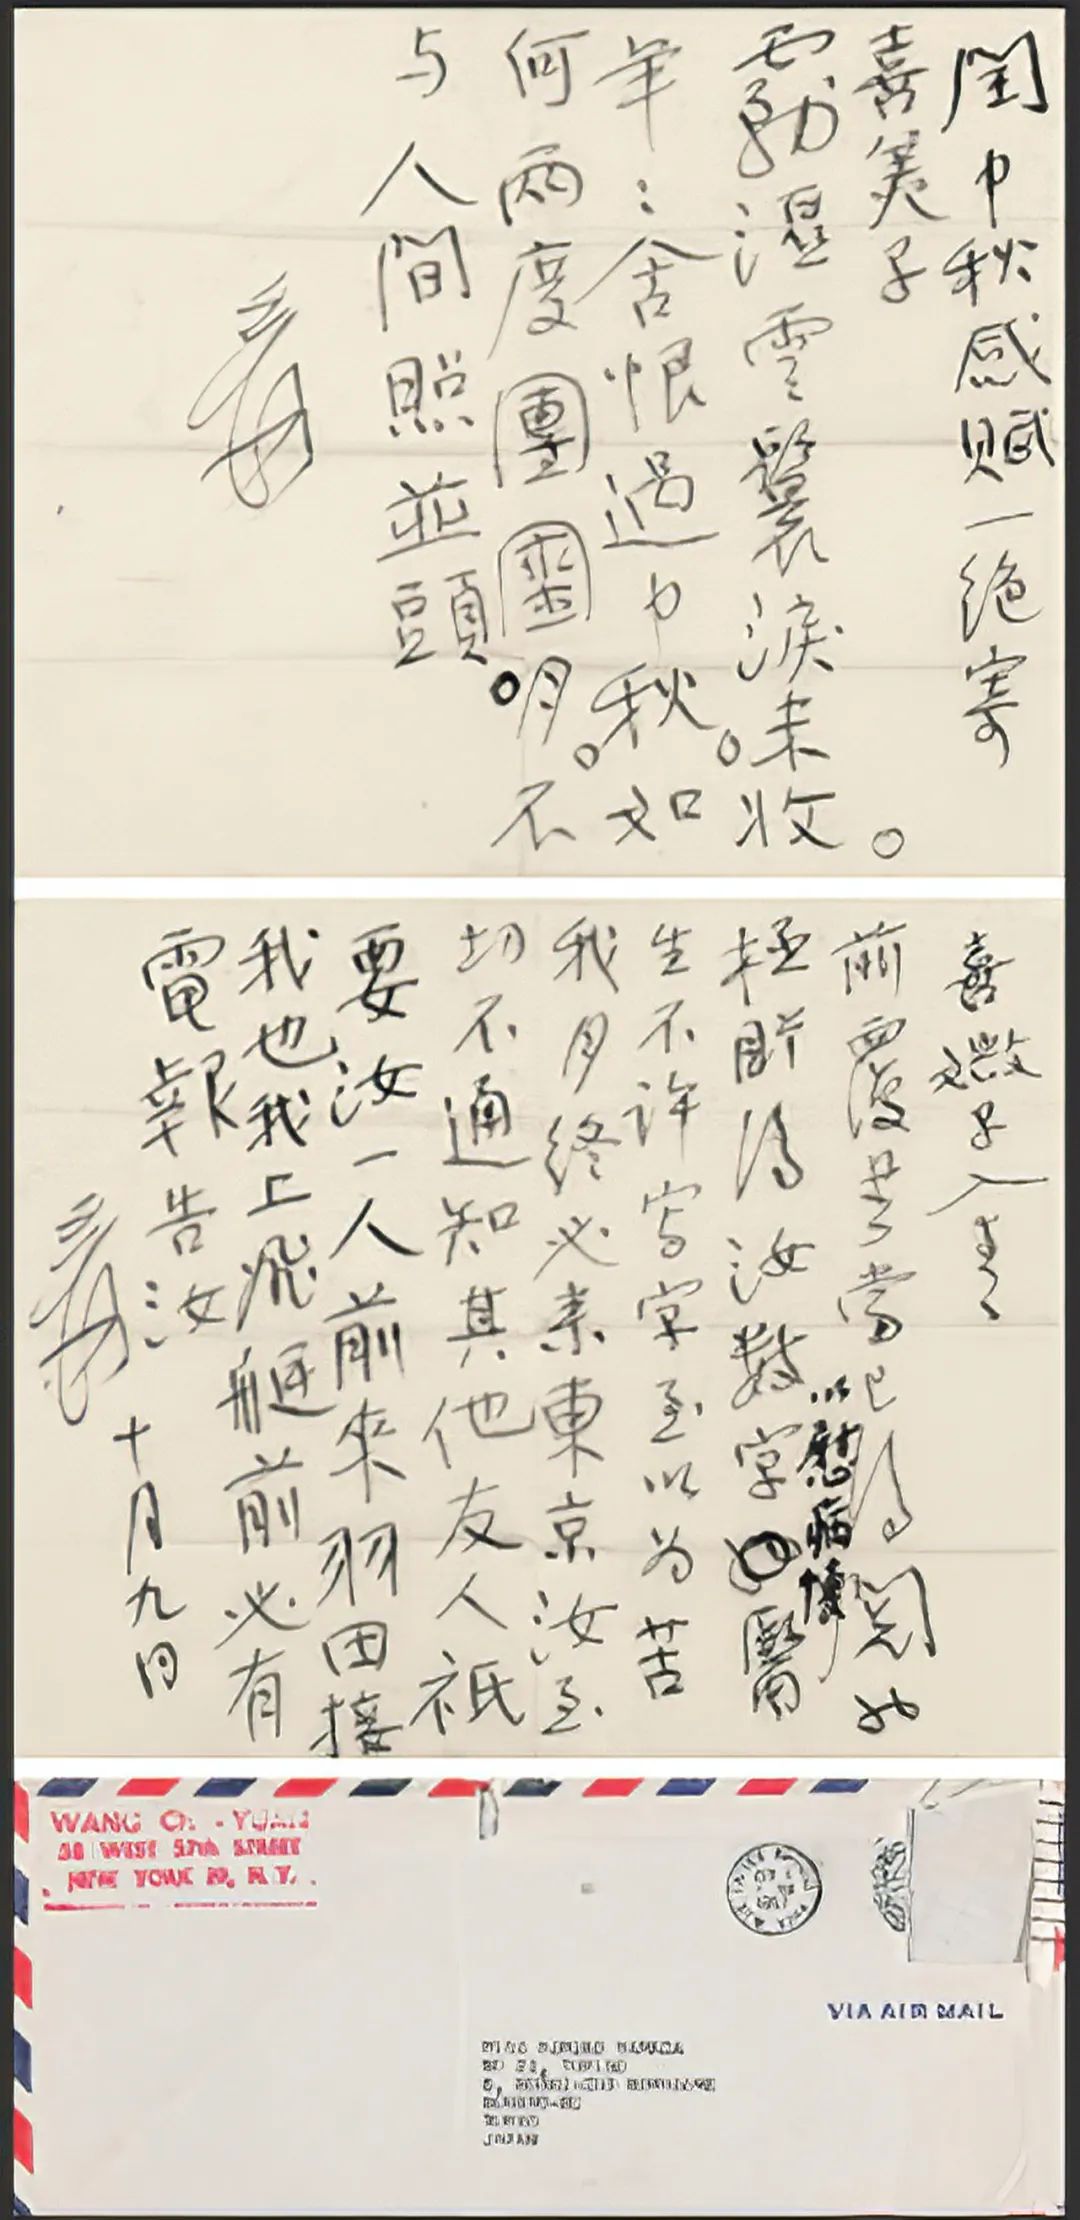 閏中秋感賦一绝寄
喜美子
霧湿雲鬟淚未收。
年:含恨過中秋。如
何兩度團圞月。不
与人間照並頭。
爰
喜子
前覆當已得閱
極盼得汝數字以慰病懷醫
生不許寫字至以为苦
我月終必來東京汝至
切不通知其他友人祇
要汝一人前來羽田接
我也我上飛艇前必有
電報告汝
爰 十月九日
WANG YUAN
WEST 57th STREET
NEW YORK 19, N.Y.
VIA AIR MAIL
JAPAN